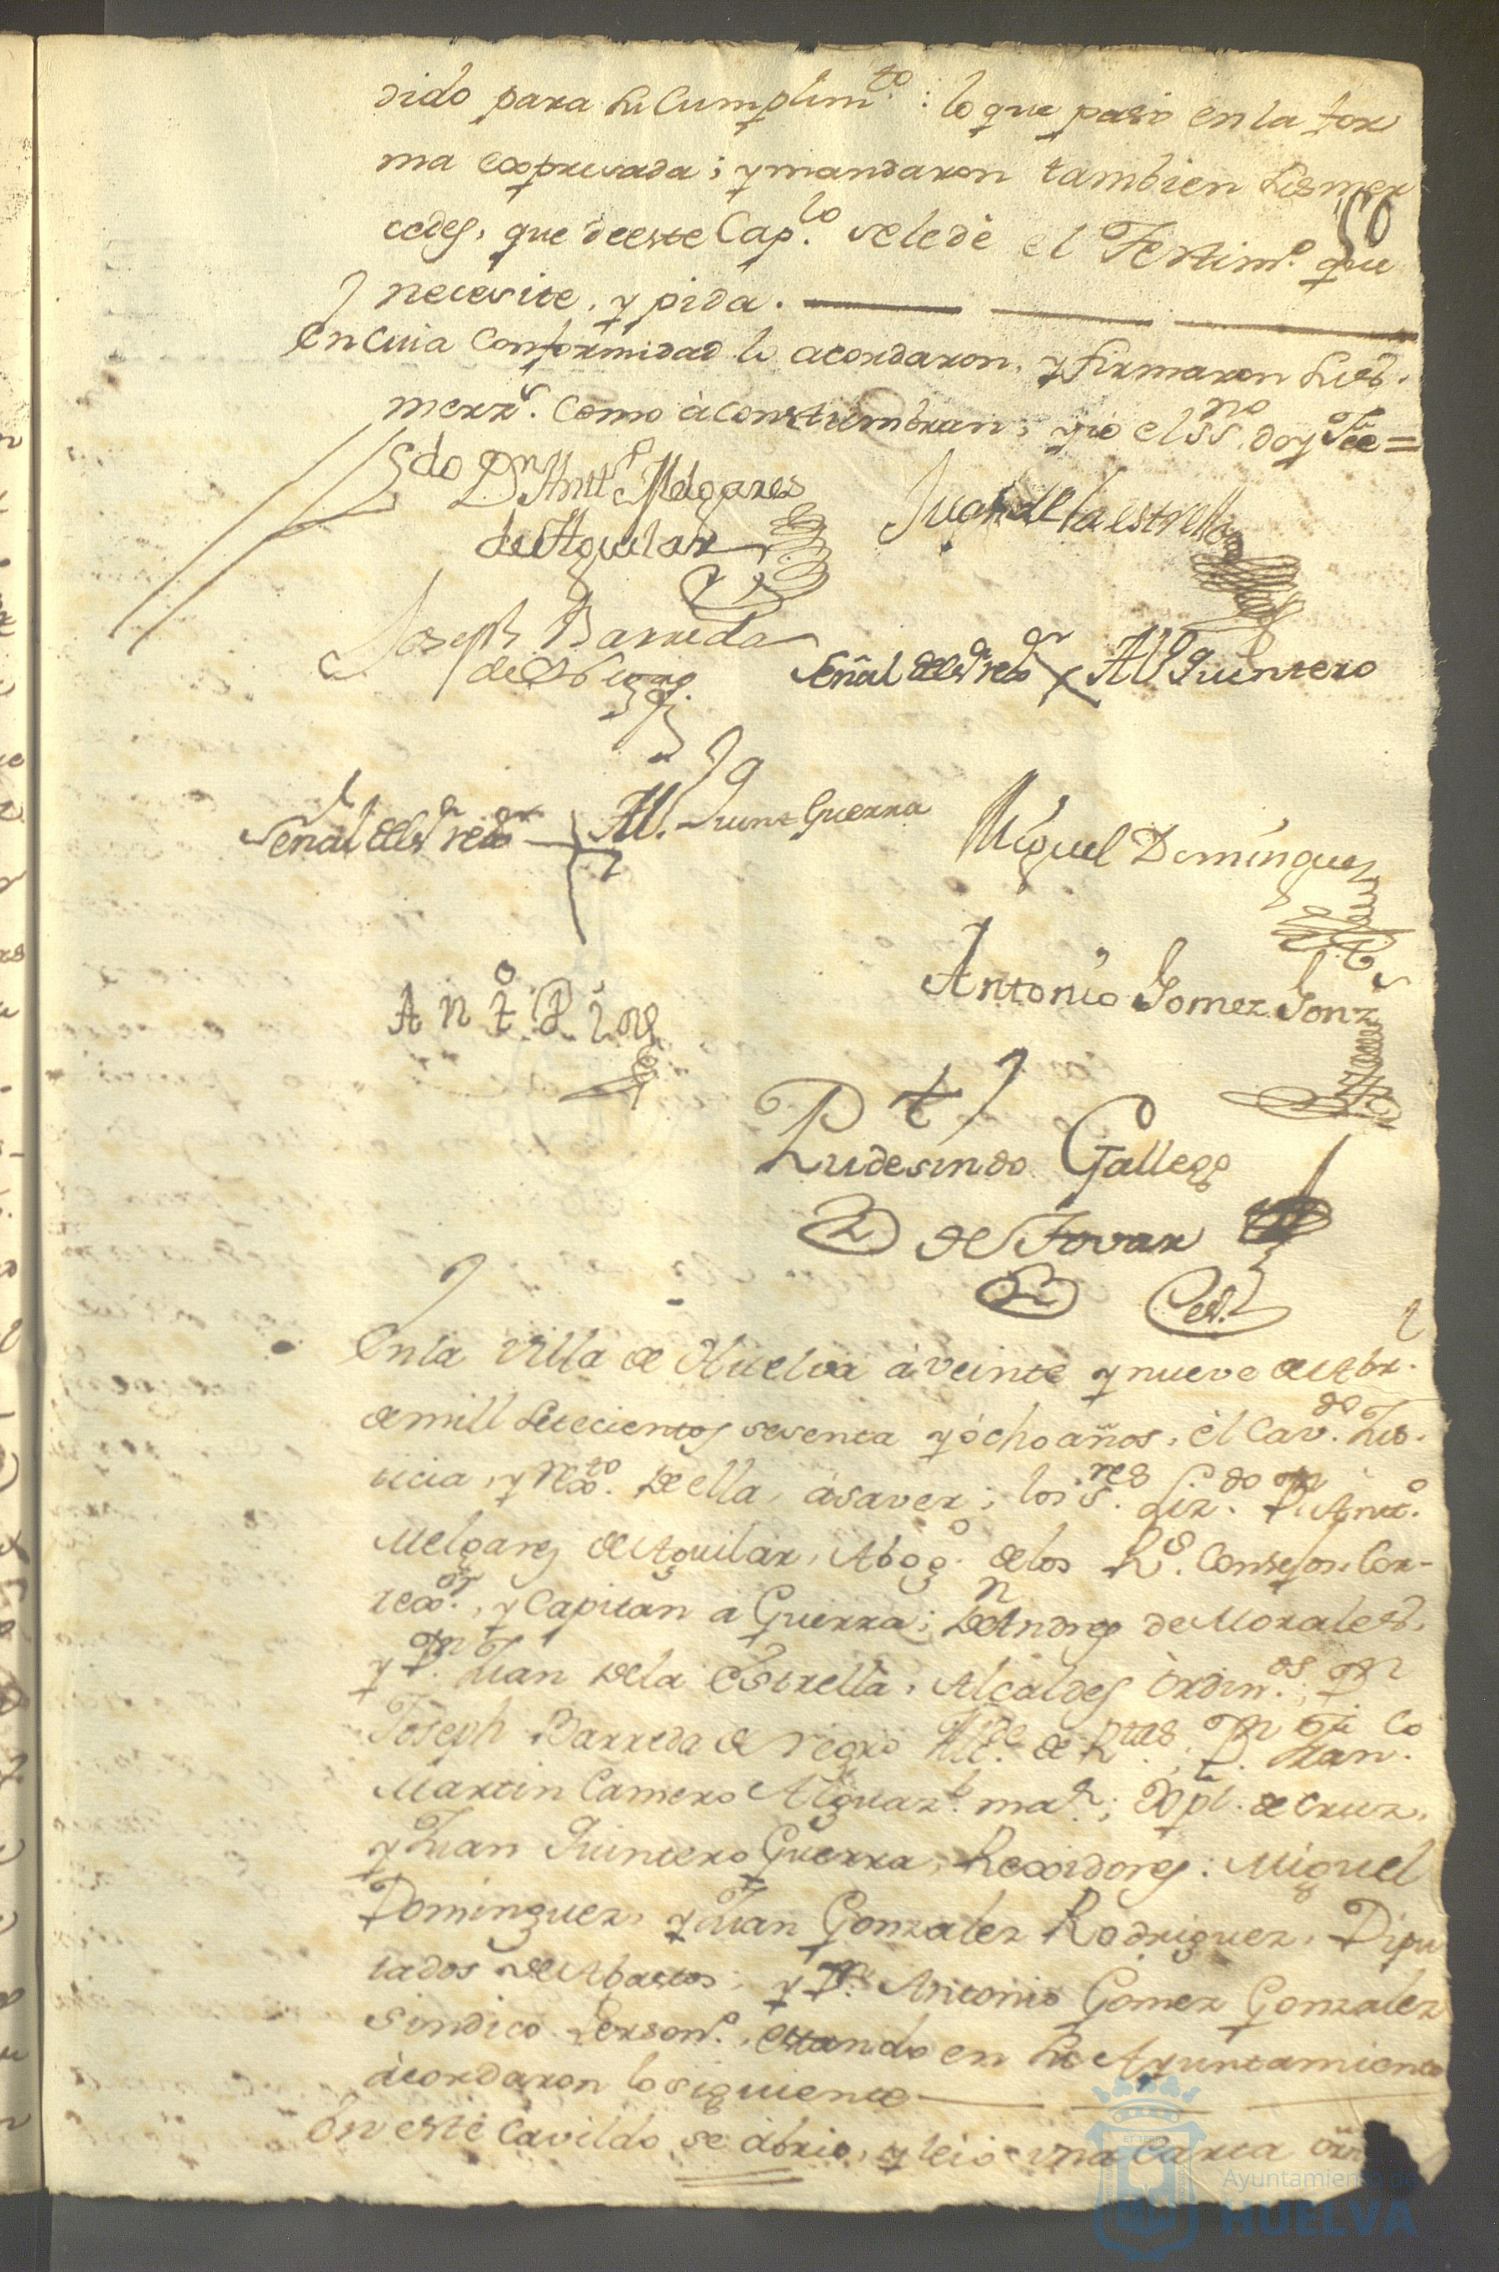 dido para su Cumplim.to: lo que pasó en la for
ma expresada; y mandaron tambien sus mer
50
cedes, que de este Cap.lo se le dè el Testim.o que
necesite, y pida.
En cuia Conformidad lo acordaron, y firmaron sus
merz.s como àcostumbran, yo el SS.no doy feè=
Lz.do Dn Antt.o Melgares
de Aguilar
Juan de la estrella
Joseph Barreda
Señal del S.r rex.or Al Quintero
Señal del S.r rex.or Al. Juan Quint.o Guerra
Miguel Dominguez
Antonio Gomez Gonz.s
Ant.o
Rudesindo Gallego
de Tovar
En la Villa de Huelva à veinte y nueve de Abr.l
de mill setecientos sesenta y òcho años, èl Cav.do Jus-
ticia, y Rex.to de ella, àsaver; los S.res Liz.do Dn Ant.o
Melgares de Aguilar, Abog.o de los R.s Consejos, Cor-
rex.or, y Capitan a Guerra; Dn Andres de Morales,
y Dn Juan de la Estrella, Alcaldes òrdin.os; Dn
Joseph Barreda de Negro Alc.de de R.tas; Dn Fran.co
Martin Camero Alguaz.l ma.r; Xptl. de Cruz,
y Juan Quintero Guerra, Rexidores: Miguel
Dominguez, y Juan Gonzalez Rodriguez, Dipu
tados de Abastos; y Dn Antonio Gomez Gonzalez
Sindico Person.o, estando en su Ayuntamiento
àcordaron lo siguiente
En este Cavildo se àbrio, y leio una Carta òrn
Ayuntamiento de
HUELVA